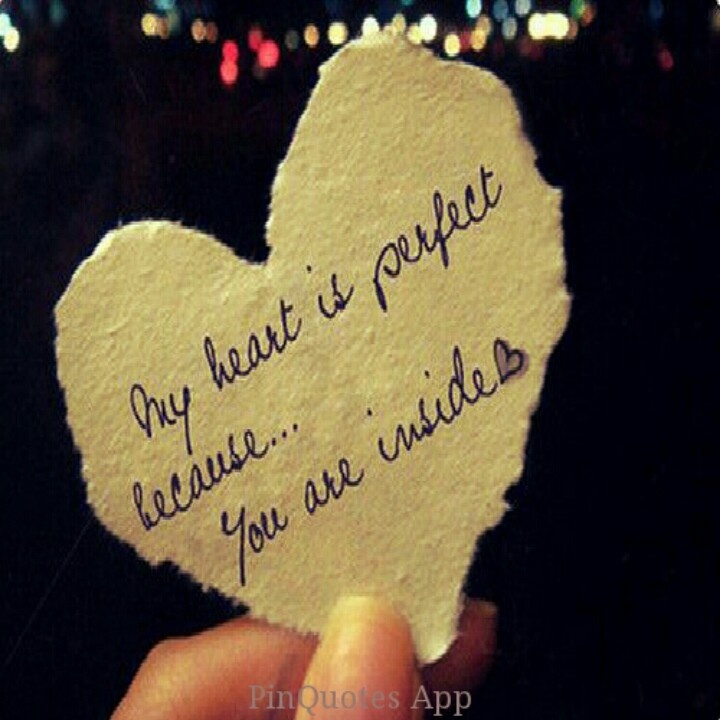 My heart is perfect
because...
You are inside
PinQuotes App